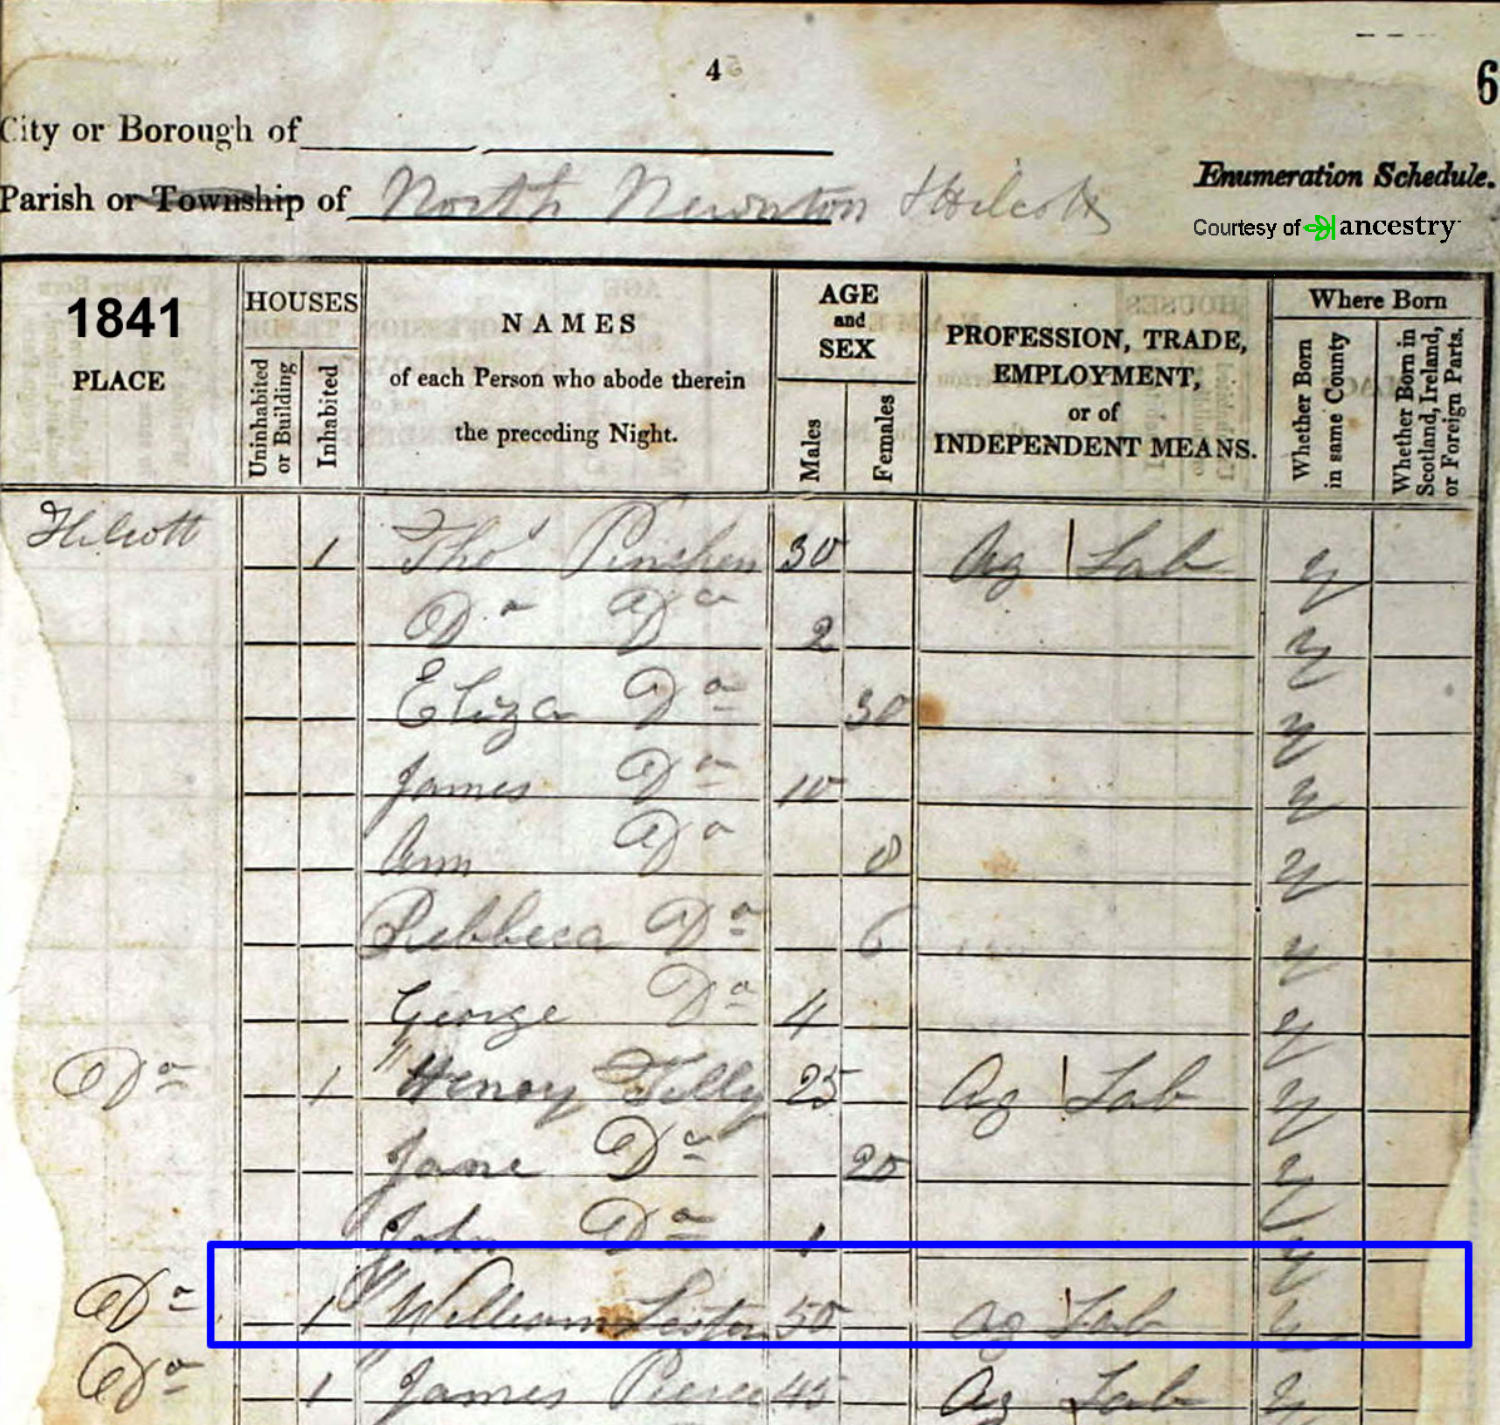 4
6
City or Borough of
Parish or Township of North Newnton Hilcott
Enumeration Schedule.
Courtesy of ancestry
1841
PLACE
HOUSES
Uninhabited or Building
Inhabited
NAMES
of each Person who abode therein
the preceding Night.
AGE
and
SEX
Males
Females
PROFESSION, TRADE,
EMPLOYMENT,
or of
INDEPENDENT MEANS.
Where Born
Whether Born in same County
Whether Born in Scotland, Ireland, or Foreign Parts.
Hilcott 1 Thos Pinchen 30 Ag Lab y
Do Do 2 y
Eliza Do 30 y
James Do 10 y
Ann Do 8 y
Rebbeca Do 6 y
George Do 4 y
Do 1 Henry Tilly 25 Ag Lab y
Jane Do 20 y
John Do 1 y
Do 1 William 50 Ag Lab y
Do 1 James Pierce 45 Ag Lab y